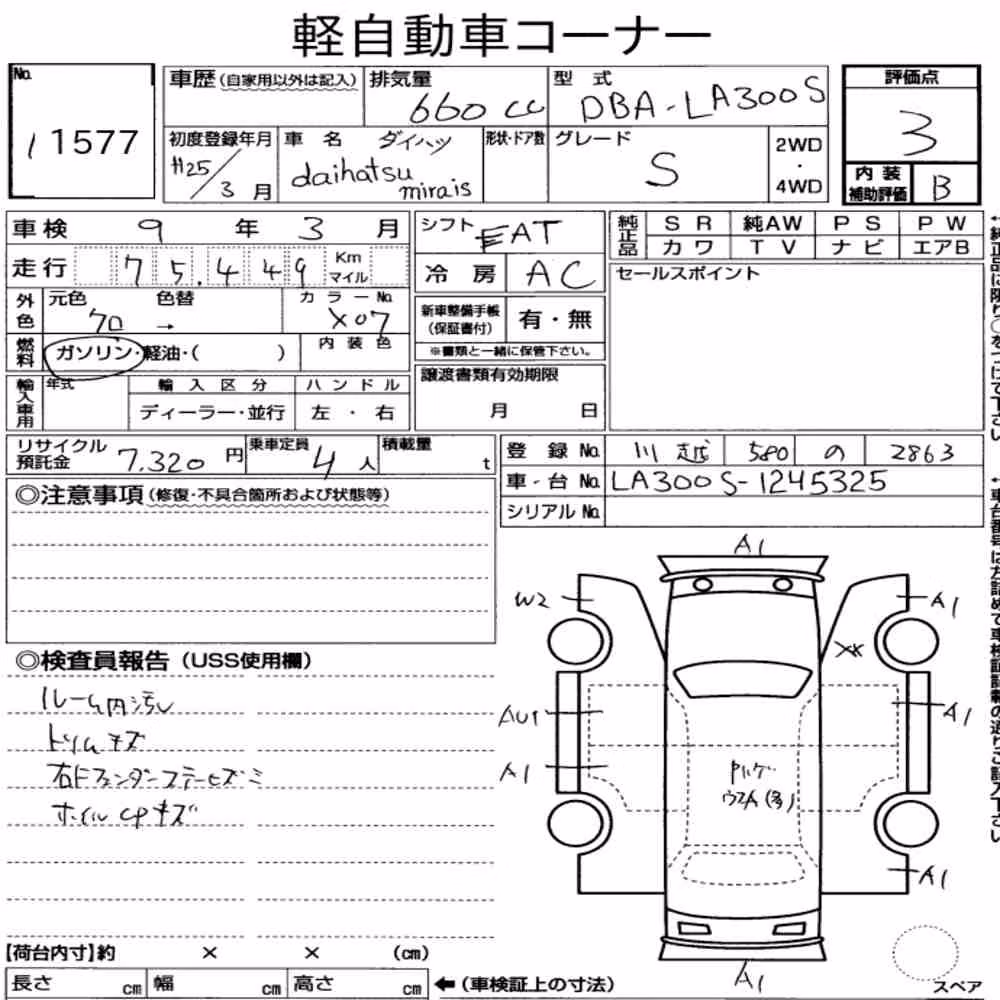 軽自動車コーナー
No. 11577
車歴 (自家用以外は記入)
排気量 660 cc
型式 DBA-LA300S
評価点 3
初度登録年月 H25/3月
車名 ダイハツ
daihatsu mirais
形状・ドア数
グレード S
2WD・4WD
内装補助評価 B
車検 9年 3月
シフト EAT
純正品 SR 純AW PS PW
カワ TV ナビ エアB
走行 75,449 Km マイル
冷房 AC
セールスポイント
外色 元色 クロ → 色替 カラーNo. X07
新車整備手帳(保証書付) 有・無
※書類と一緒に保管下さい。
燃料 ガソリン・軽油・( ) 内装色
譲渡書類有効期限 月 日
輸入車用 年式 輸入区分 ハンドル
ディーラー・並行 左・右
リサイクル預託金 7,320円
乗車定員 4人
積載量 t
登録No. 川越 580 の 2863
車台No. LA300S-1245325
シリアルNo.
◎注意事項 (修復・不具合箇所および状態等)
◎検査員報告 (USS使用欄)
ルーム内汚レ
トリムキズ
右Fフェンダーステーヒズミ
ホイルCPキズ
A1
W2
A1
XX
AU1
A1
A1
A1
A1
スペア
【荷台内寸】約 × × (cm)
長さ cm 幅 cm 高さ cm
←(車検証上の寸法)